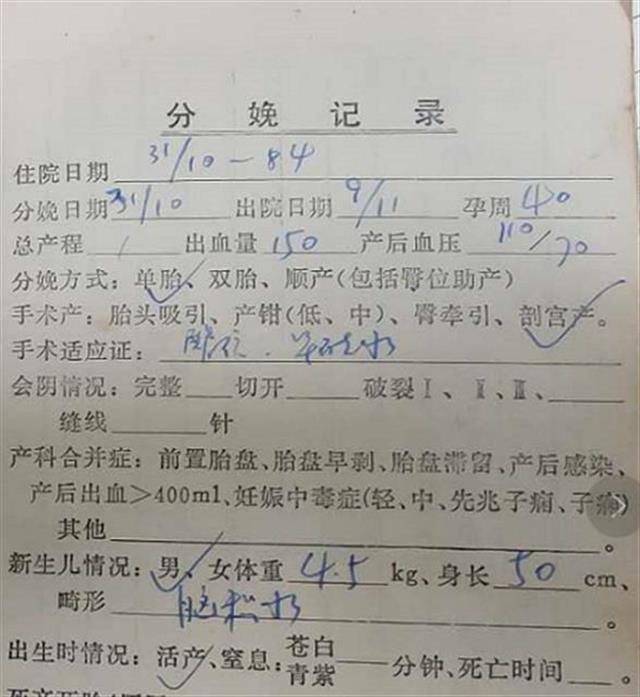 分娩记录
住院日期 31/10-84
分娩日期 31/10 出院日期 9/11 孕周 40
总产程 / 出血量 150 产后血压 110/70
分娩方式：单胎、双胎、顺产(包括臀位助产)
手术产：胎头吸引、产钳(低、中)、臀牵引、剖宫产。
手术适应证：臀位.早破水
会阴情况：完整___切开___破裂Ⅰ、Ⅱ、Ⅲ、___
缝线___针
产科合并症：前置胎盘、胎盘早剥、胎盘滞留、产后感染、
产后出血>400ml、妊娠中毒症(轻、中、先兆子痫、子痫)
其他___。
新生儿情况：男、女体重 4.5 kg、身长 50 cm、
畸形 脑积水。
出生时情况：活产、窒息：苍白
青紫——分钟、死亡时间__。